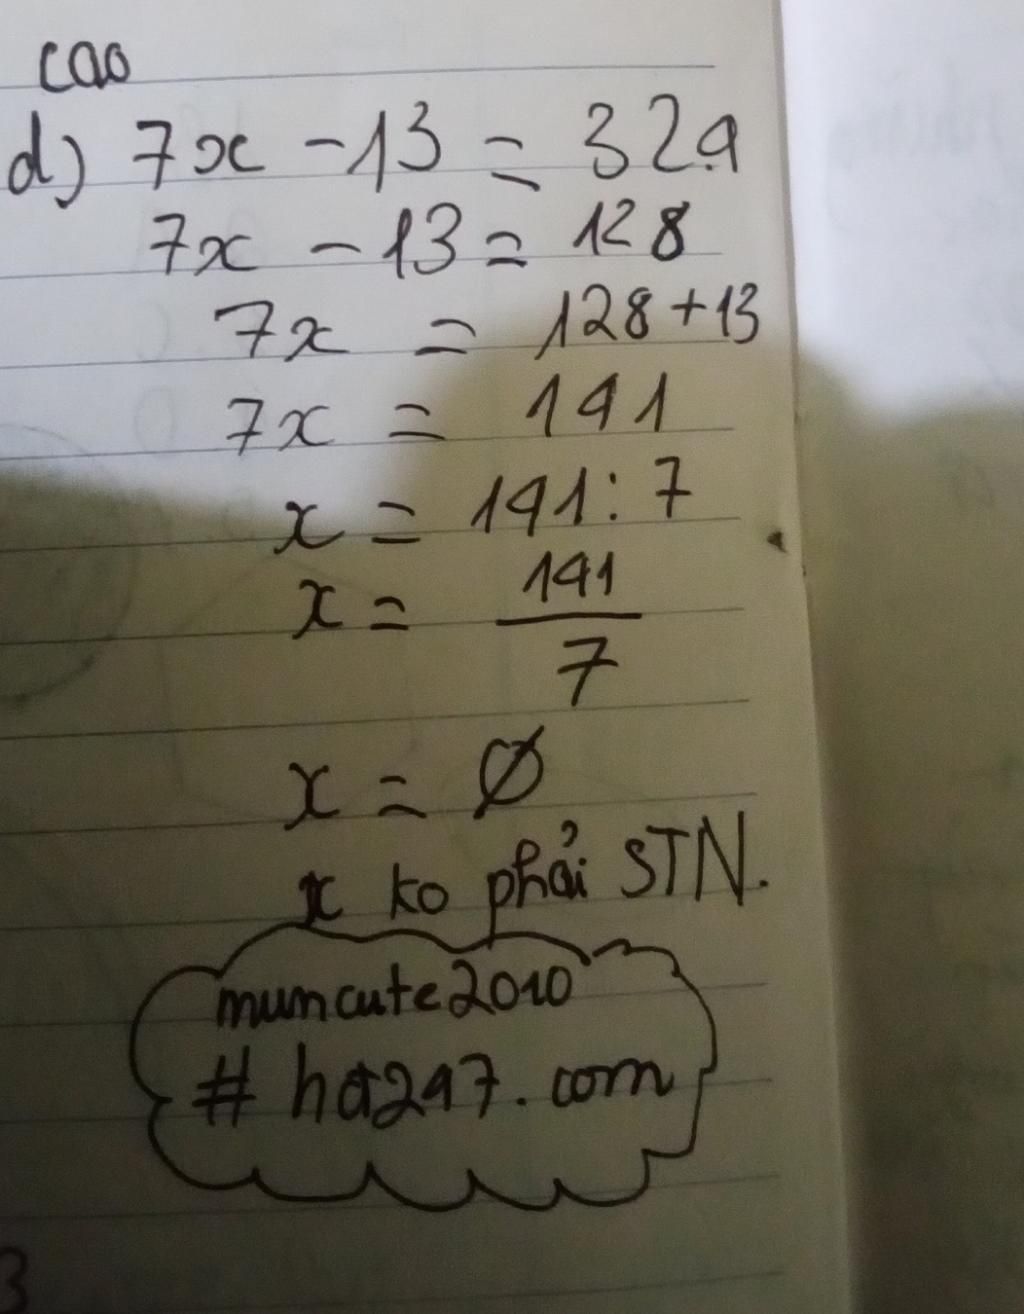 cao
d) 7x - 13 = 32.4
7x - 13 = 128
7x = 128 + 13
7x = 141
x = 141 : 7
x = 141/7
x = ∅
x ko phải STN.
muncute2010
# hd247.com
3